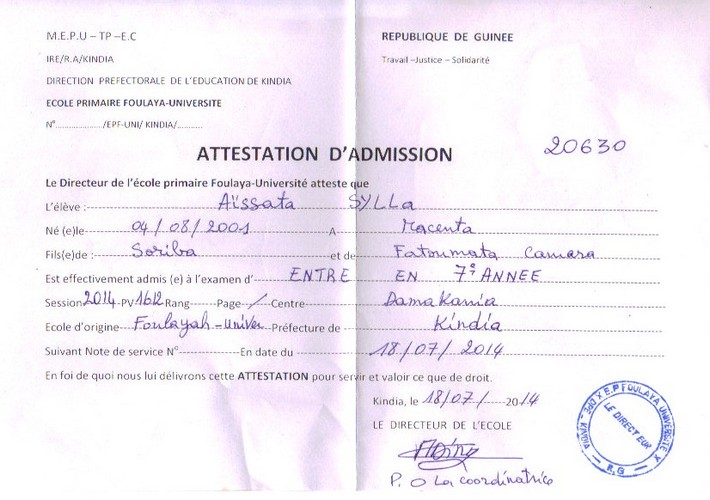 M.E.P.U – TP –E.C
REPUBLIQUE DE GUINEE
IRE/R.A/KINDIA
Travail –Justice – Solidarité
DIRECTION PREFECTORALE DE L'EDUCATION DE KINDIA
ECOLE PRIMAIRE FOULAYA-UNIVERSITE
N°..................../EPF-UNI/ KINDIA/..........
ATTESTATION D'ADMISSION
20630
Le Directeur de l'école primaire Foulaya-Université atteste que
L'élève : Aïssata SYLLa
Né (e)le 04/08/2001 A Macenta
Fils(e)de : Soriba et de Fatoumata Camara
Est effectivement admis (e) à l'examen d' ENTRE EN 7e ANNEE
Session 2014 PV 1612 Rang Page / Centre Damakania
Ecole d'origine Foulayah-Univer Préfecture de Kindia
Suivant Note de service N° En date du 18/07/2014
En foi de quoi nous lui délivrons cette ATTESTATION pour servir et valoir ce que de droit.
Kindia, le 18/07/ 2014
LE DIRECTEUR DE L'ECOLE
P.O La coordinatrice
E.P FOULAYA UNIVERSITE X R.G DPE - KINDIA X
LE DIRECTEUR